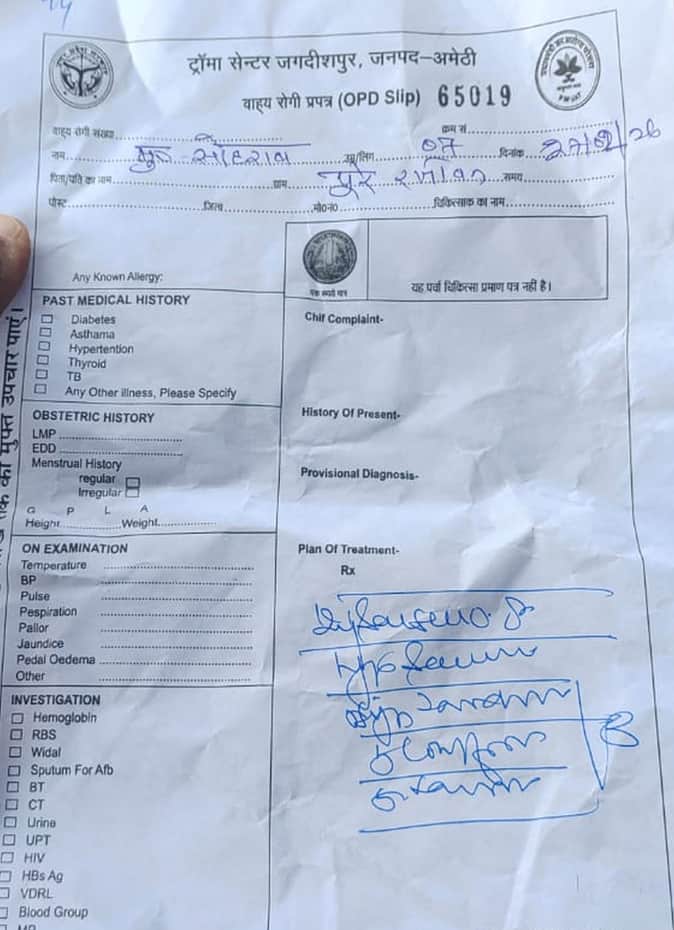 ट्रॉमा सेन्टर जगदीशपुर, जनपद-अमेठी
वाहय रोगी प्रपत्र (OPD Slip) 65019
वाहय रोगी संख्या
क्रम सं
नाम मु० सोहराब उम्र/लिंग 07 दिनांक
पिता/पति का नाम ग्राम पुरे समय
पोस्ट जिला मो०न० चिकित्सक का नाम
एक रूपये मात्र
यह पर्चा चिकित्सा प्रमाण पत्र नहीं है।
Any Known Allergy:
PAST MEDICAL HISTORY
Diabetes
Asthama
Hypertention
Thyroid
TB
Any Other illness, Please Specify
OBSTETRIC HISTORY
LMP
EDD
Menstrual History
regular
Irregular
G P L A
Height Weight
ON EXAMINATION
Temperature
BP
Pulse
Pespiration
Pallor
Jaundice
Pedal Oedema
Other
INVESTIGATION
Hemoglobin
RBS
Widal
Sputum For Afb
BT
CT
Urine
UPT
HIV
HBs Ag
VDRL
Blood Group
Chif Complaint-
History Of Present-
Provisional Diagnosis-
Plan Of Treatment-
Rx
का मुफ्त उपचार पाएं।